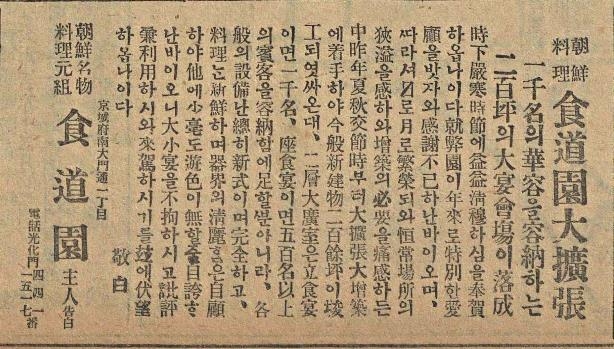 朝鮮料理 食道園大擴張
一千名의華容을容納하는
二百坪의大宴會場이落成
時下嚴寒時節에益益淸穆하심을奉賀
하옵나이다就弊園이年來로特別한愛
顧을밧자와感謝不已하난바이오며、
따라셔日로月로繁榮되와恒常場所의
狹溢을感하와增築의必要을痛感하든
中昨年夏秋交節时부터大擴張大增築
에着手하야今般新建物二百餘坪이竣
工되엿싸온대、二層大廣室은立食宴
이면一千名、座食宴이면五百名以上
의賓客을容納함에足할뿐아니라、各
般의設備난總히新式이며完全하고、
料理난新鮮하며器界의淸麗홈은自顧
하야他에小毫도遊色이無함을自誇하
난바이오니大小宴을不拘하시고批評
兼利用하시와來駕하시기를玆에伏望
하옵나이다
敬白
京城府南大門通一丁目
朝鮮名物
料理元組 食道園 主人告白
電話光化門 四四一
一五一七番